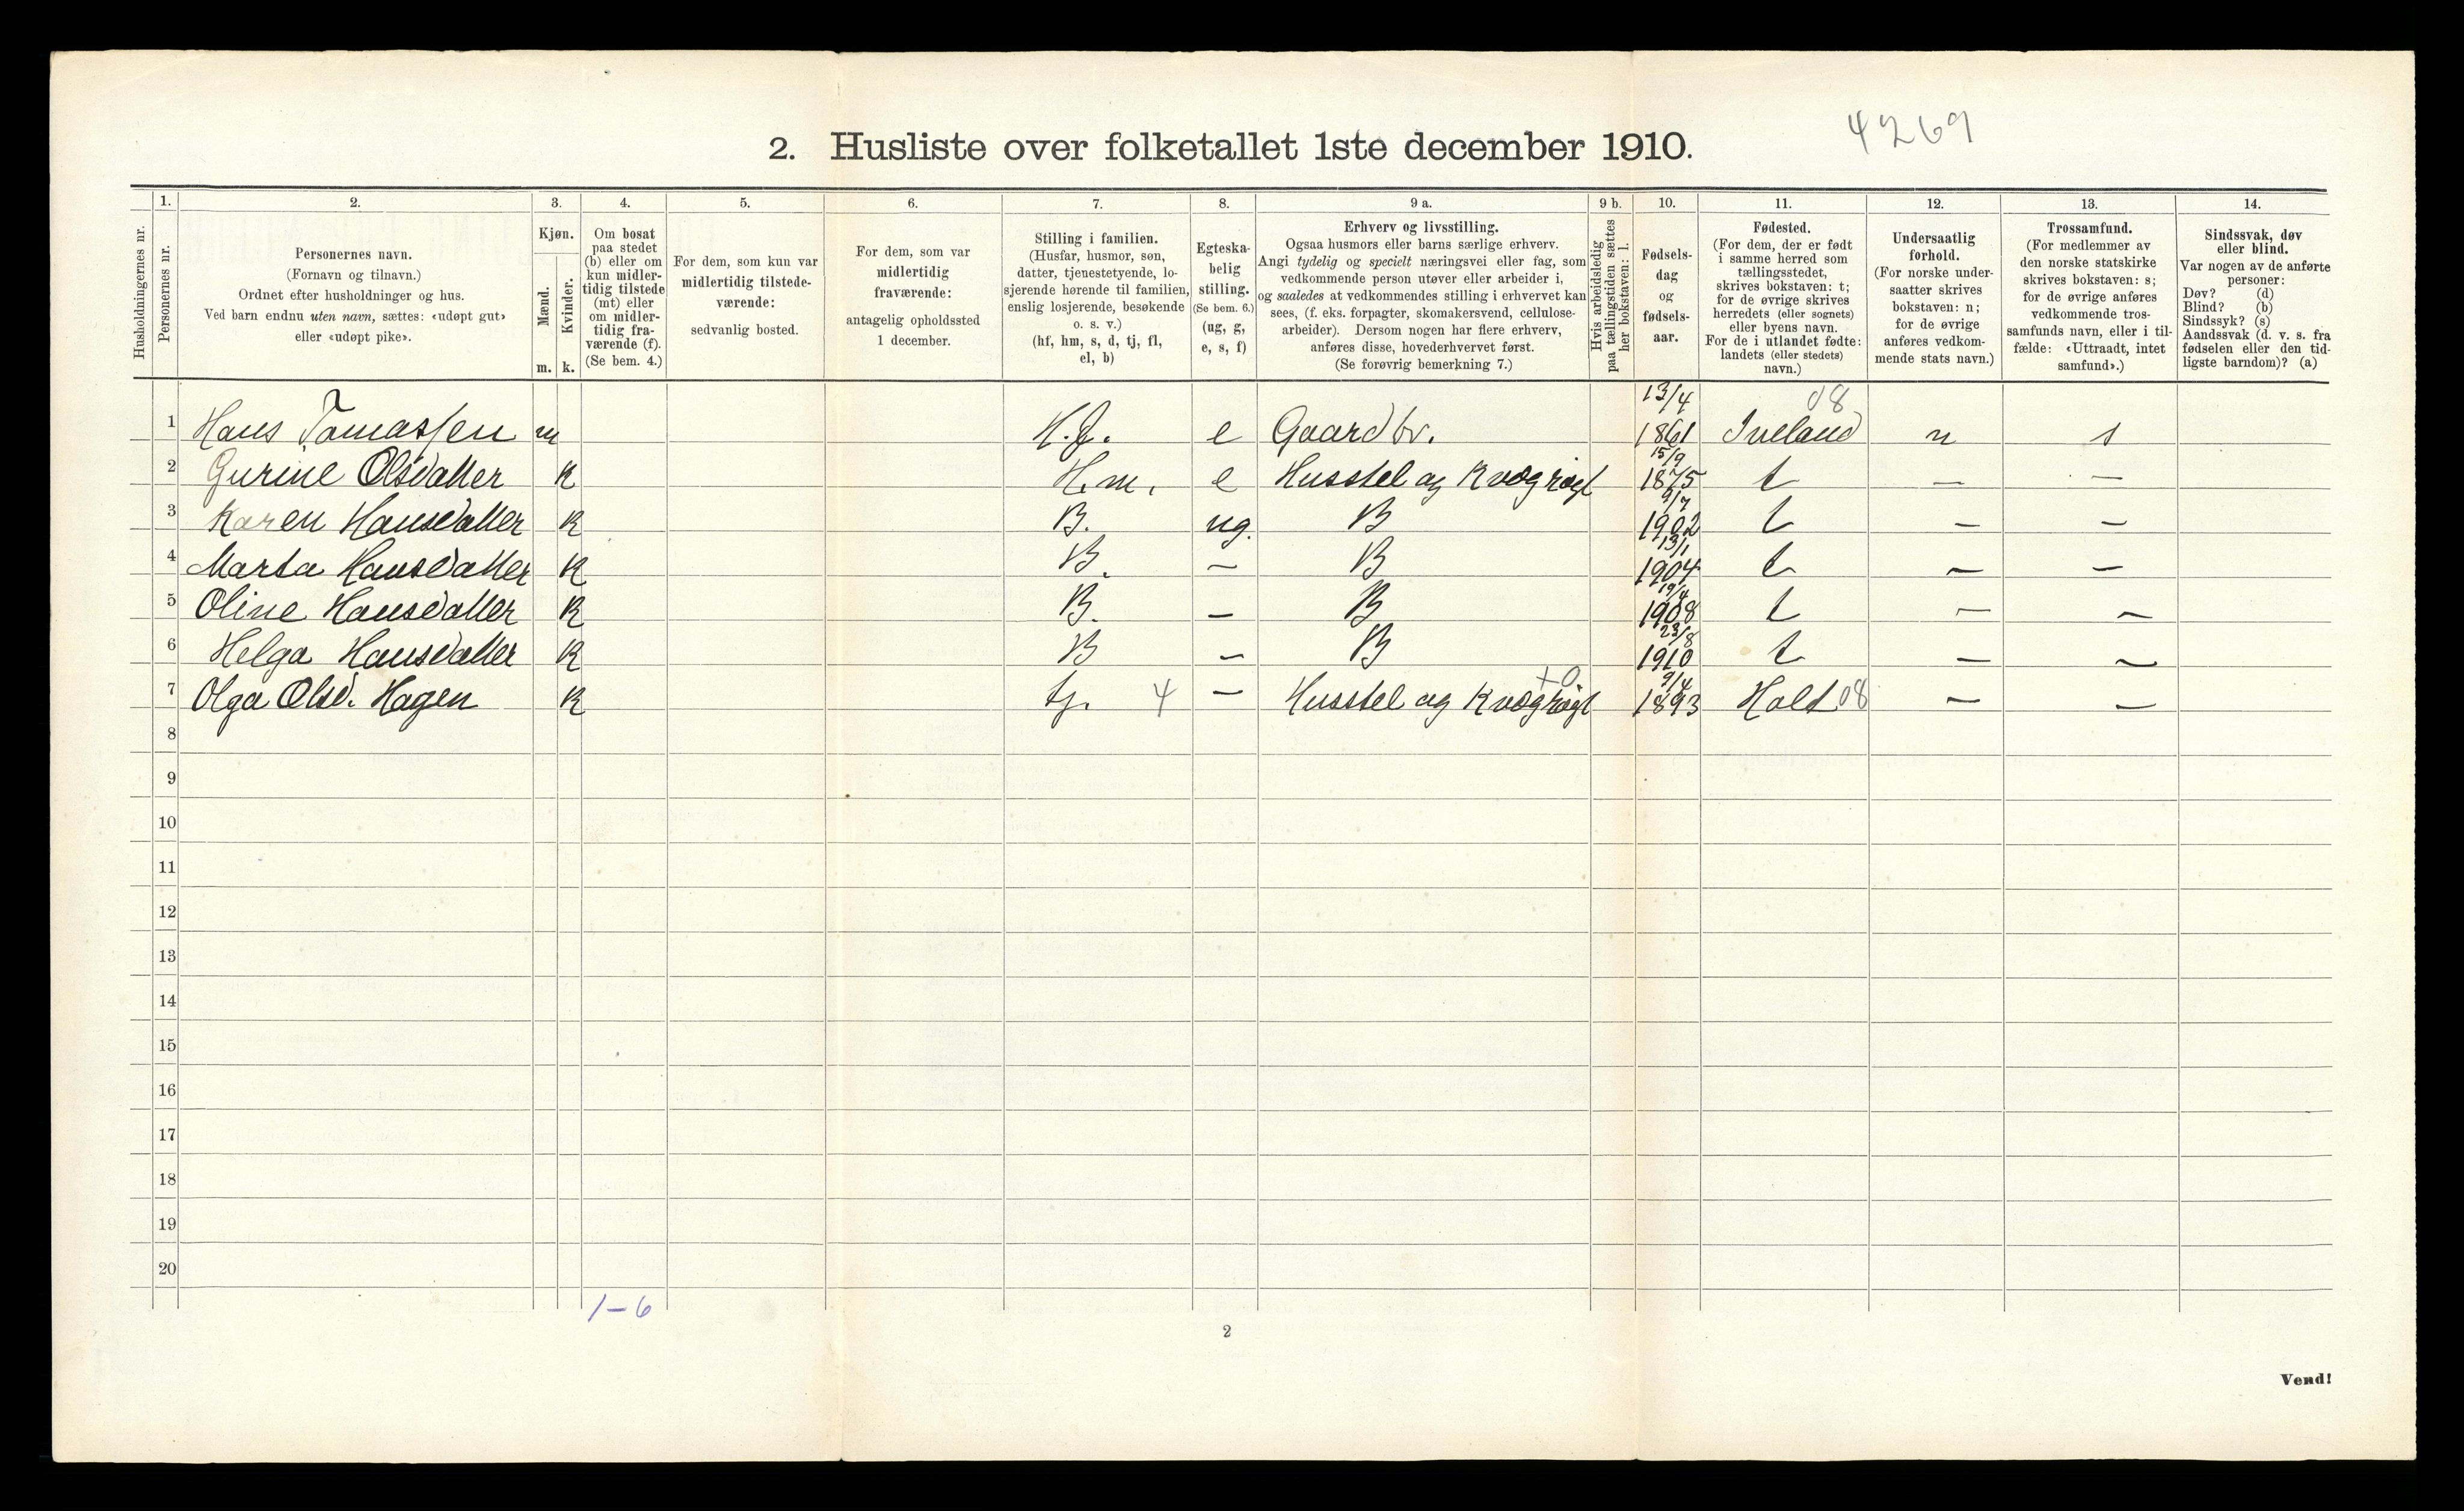 4269
2. Husliste over folketallet 1ste december 1910.
Husholdningernes nr.
1.
Personernes nr.
2.
Personernes navn.
(Fornavn og tilnavn.)
Ordnet efter husholdninger og hus.
Ved barn endnu uten navn, sættes: «udøpt gut»
eller «udøpt pike».
3.
Kjøn.
Mænd.
Kvinder.
m. k.
4.
Om bosat
paa stedet
(b) eller om
kun midler-
tidig tilstede
(mt) eller
om midler-
tidig fra-
værende (f).
(Se bem. 4.)
5.
For dem, som kun var
midlertidig tilstede-
værende:
sedvanlig bosted.
6.
For dem, som var
midlertidig
fraværende:
antagelig opholdssted
1 december.
7.
Stilling i familien.
(Husfar, husmor, søn,
datter, tjenestetyende, lo-
sjerende hørende til familien,
enslig losjerende, besøkende
o. s. v.)
(hf, hm, s, d, tj, fl,
el, b)
8.
Egteska-
belig
stilling.
(Se bem. 6.)
(ug, g,
e, s, f)
9 a.
Erhverv og livsstilling.
Ogsaa husmors eller barns særlige erhverv.
Angi tydelig og specielt næringsvei eller fag, som
vedkommende person utøver eller arbeider i,
og saaledes at vedkommendes stilling i erhvervet kan
sees, (f. eks. forpagter, skomakersvend, cellulose-
arbeider). Dersom nogen har flere erhverv,
anføres disse, hovederhvervet først.
(Se forøvrig bemerkning 7.)
9 b.
Hvis arbeidsledig
paa tællingstiden sættes
her bokstaven: l.
10.
Fødsels-
dag
og
fødsels-
aar.
11.
Fødested.
(For dem, der er født
i samme herred som
tællingsstedet,
skrives bokstaven: t;
for de øvrige skrives
herredets (eller sognets)
eller byens navn.
For de i utlandet fødte:
landets (eller stedets)
navn.)
12.
Undersaatlig
forhold.
(For norske under-
saatter skrives
bokstaven: n;
for de øvrige
anføres vedkom-
mende stats navn.)
13.
Trossamfund.
(For medlemmer av
den norske statskirke
skrives bokstaven: s;
for de øvrige anføres
vedkommende tros-
samfunds navn, eller i til-
fælde: «Uttraadt, intet
samfund».)
14.
Sindssvak, døv
eller blind.
Var nogen av de anførte
personer:
Døv? (d)
Blind? (b)
Sindssyk? (s)
Aandssvak (d. v. s. fra
fødselen eller den tid-
ligste barndom)? (a)
1 Hans Tomassen m H.f. e Gaardbr. 13/4 1861 Iveland 08 n s
2 Gurine Olsdatter K H.m. e Husstel og Kvægrøgt 15/9 1875 t — —
3 Karen Hansdatter K B. ug. B 9/7 1902 t — —
4 Marta Hansdatter K B. — B 13/1 1904 t — —
5 Oline Hansdatter K B. — B 19/4 1908 t — —
6 Helga Hansdatter K B — B 23/8 1910 t — —
7 Olga Olsd. Hagen K tj. 4 — Husstel og Kvægrøgt +0 9/4 1893 Holt 08 — —
8
9
10
11
12
13
14
15
16
17
18
19
20
1-6
2
Vend!